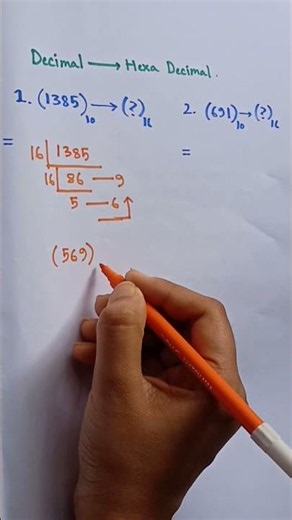 Decimal → Hexa Decimal.
1. (1385)₁₀ → (?)₁₆
=
16 | 1385
16 | 86 — 9
5 — 6 ↑
(569)
2. (691)₁₀ → (?)₁₆
=